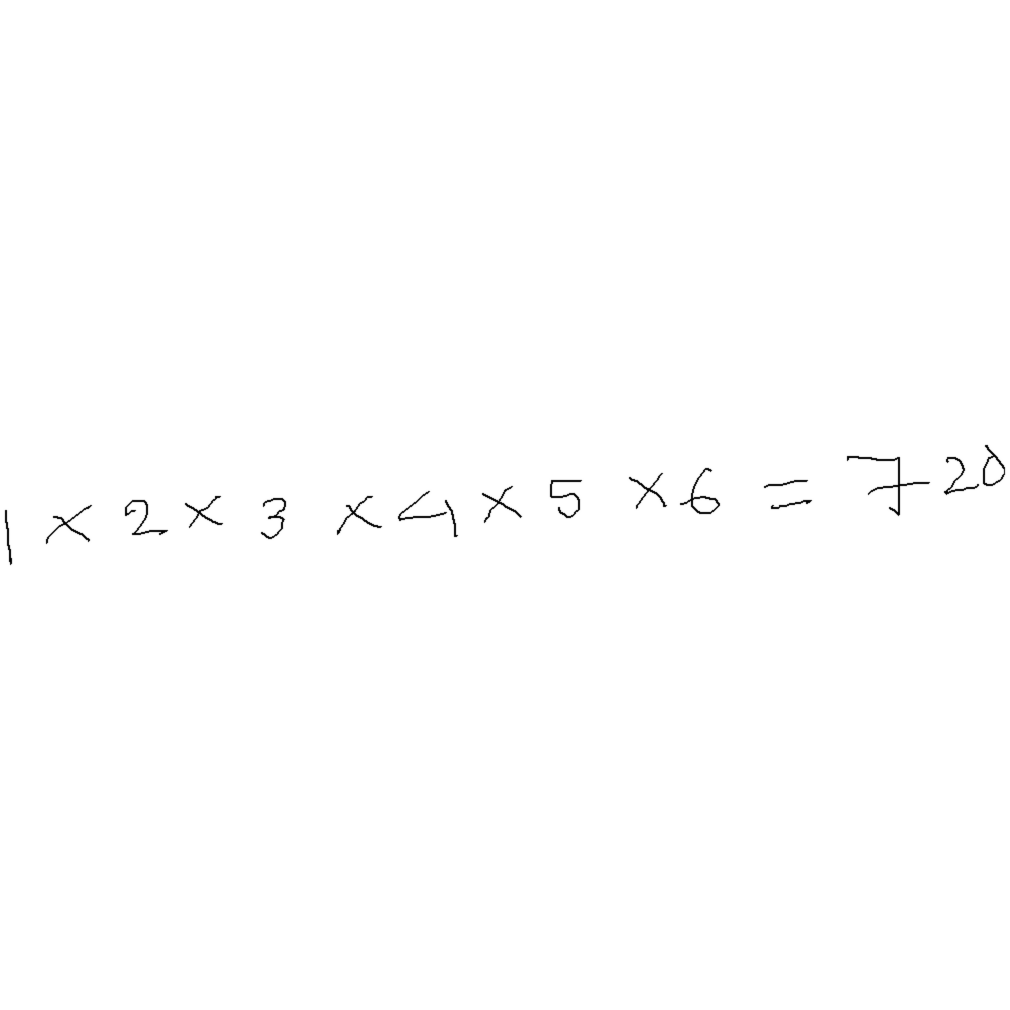 1 × 2 × 3 × 4 × 5 × 6 = 720